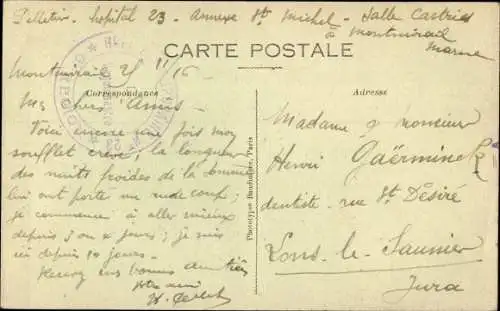 Pelletier. Hospital 23. Annexe St Michel. Salle Castries
à Montmirail
Marne
CARTE POSTALE
Montmirail 25/11/16
Correspondance
Adresse
Mes chers Amis.
Voici encore une fois mon
soufflet crevé, la longueur
des nuits froides de la Somme
lui ont porté un rude coup;
je commence à aller mieux
depuis 3 ou 4 jours; je suis
ici depuis 10 jours.
Recevez mes bonnes amitiés
Votre ami
Phototypie Baudinière, Paris
Madame & monsieur
Henri Gaërminck
dentiste. rue St Désiré
Lons-le-Saunier
Jura